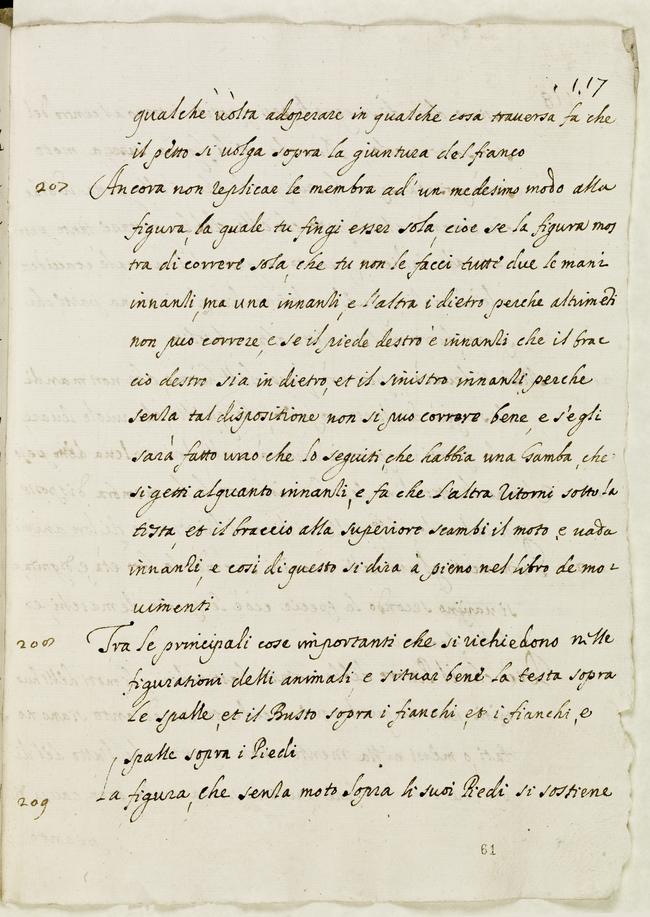 117
qualche uolta adoperare in qualche cosa trauersa fa che
il petto si uolga sopra la giuntura del fianco
207 Ancora non replicar le membra ad' un medesimo modo alla
figura, la quale tu fingi esser sola, cioe se la figura mos
tra di correre sola, che tu non le facci tutte due le mani
innanzi, ma una innanzi, e l'altra i dietro perche altrimẽti
non puo correre, e se il piede destro è innanzi che il brac
cio destro sia in dietro, et il sinistro innanzi, perche
senza tal dispositione non si puo correre bene, e s'egli
sarà fatto uno che lo seguiti, che habbia una Gamba, che
si getti alquanto innanzi, e fa che l'altra ritorni sotto la
testa, et il braccio alla superiore scambi il moto, e uada
innanzi, e così di questo si dira à pieno nel libro de mo-
uimenti
208 Tra le principali cose importanti che si richiedono nelle
figurationi delli animali, e situar bene la testa sopra
le spalle, et il Busto sopra i fianchi, et i fianchi, e
spalle sopra i Piedi
209 La figura, che senza moto sopra li suoi Piedi si sostiene
61